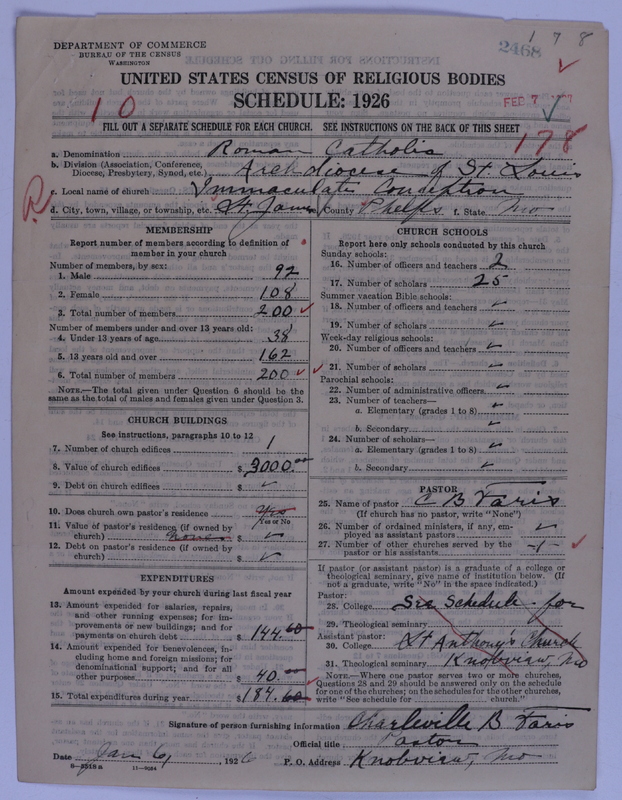 178
DEPARTMENT OF COMMERCE
BUREAU OF THE CENSUS
WASHINGTON
2468
UNITED STATES CENSUS OF RELIGIOUS BODIES
SCHEDULE: 1926
FEB 7
10
FILL OUT A SEPARATE SCHEDULE FOR EACH CHURCH. SEE INSTRUCTIONS ON THE BACK OF THIS SHEET
178
a. Denomination Roman Catholic
b. Division (Association, Conference, Diocese, Presbytery, Synod, etc.) Archdiocese of St. Louis
c. Local name of church Immaculate Conception
d. City, town, village, or township, etc. St. James County Phelps f. State Mo
R
MEMBERSHIP
Report number of members according to definition of
member in your church
Number of members, by sex:
1. Male 92
2. Female 108
3. Total number of members 200
Number of members under and over 13 years old:
4. Under 13 years of age 38
5. 13 years old and over 162
6. Total number of members 200
NOTE.—The total given under Question 6 should be
same as the total of males and females given under Question 3.
CHURCH BUILDINGS
See instructions, paragraphs 10 to 12
7. Number of church edifices 1
8. Value of church edifices $ 3000.00
9. Debt on church edifices $ ✓
10. Does church own pastor's residence Yes
Yes or No
11. Value of pastor's residence (if owned by
church) none $ ✓
12. Debt on pastor's residence (if owned by
church) $ ✓
EXPENDITURES
Amount expended by your church during last fiscal year
13. Amount expended for salaries, repairs,
and other running expenses; for im-
provements or new buildings; and for
payments on church debt $ 144.60
14. Amount expended for benevolences, in-
cluding home and foreign missions; for
denominational support; and for all
other purposes $ 40.
15. Total expenditures during year $ 184.60
CHURCH SCHOOLS
Report here only schools conducted by this church
Sunday schools:
16. Number of officers and teachers 2
17. Number of scholars 25
Summer vacation Bible schools:
18. Number of officers and teachers ✓
19. Number of scholars ✓
Week-day religious schools:
20. Number of officers and teachers ✓
21. Number of scholars ✓
Parochial schools:
22. Number of administrative officers ✓
23. Number of teachers—
a. Elementary (grades 1 to 8) ✓
b. Secondary ✓
24. Number of scholars—
a. Elementary (grades 1 to 8) ✓
b. Secondary ✓
PASTOR
25. Name of pastor C B Faris
(If church has no pastor, write "None")
26. Number of ordained ministers, if any, em-
ployed as assistant pastors ✓
27. Number of other churches served by the
pastor or his assistants -1-
If pastor (or assistant pastor) is a graduate of a college or
theological seminary, give name of institution below. (If
not a graduate, write "No" in the space indicated.)
Pastor:
28. College See Schedule for
29. Theological seminary
Assistant pastor:
30. College St Anthony's Church
31. Theological seminary Knobview, Mo
NOTE.—Where one pastor serves two or more churches,
Questions 28 and 29 should be answered only on the schedule
for one of the churches; on the schedules for the other churches,
write "See schedule for church."
Signature of person furnishing information Charleville B Faris
Official title Pastor
Date Jan 6, 1926 P. O. Address Knobview, Mo
8-5518 a 11-9064